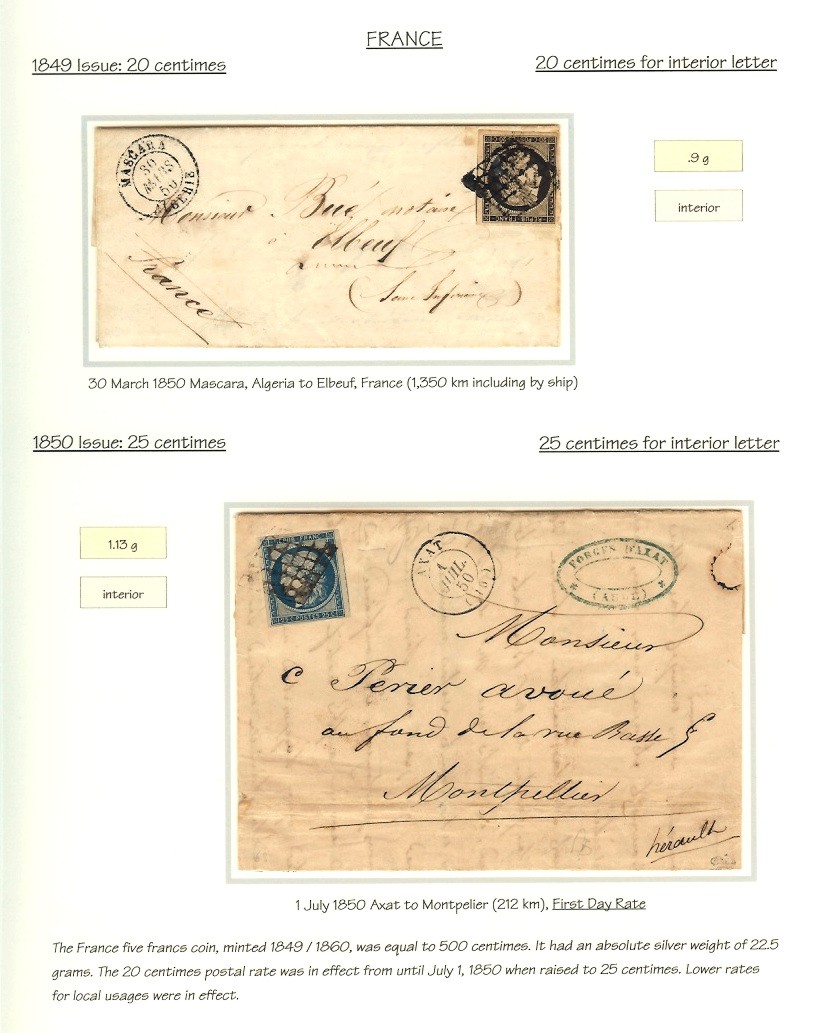 FRANCE
1849 Issue: 20 centimes
20 centimes for interior letter
MASCARA
30
MARS
50
ALGERIE
REPUB. FRANC.
.9 g
interior
Monsieur Bué, notaire
à Elbeuf
France
(Seine Inférieure)
30 March 1850 Mascara, Algeria to Elbeuf, France (1,350 km including by ship)
1850 Issue: 25 centimes
25 centimes for interior letter
1.13 g
interior
REPUB. FRANC.
25 C POSTES 25 C
AXAT
1
JUIL.
50
(10)
FORGES D'AXAT
(AUDE)
Monsieur
Perier avoué
au fond de la rue Basse
Montpellier
hérault
1 July 1850 Axat to Montpelier (212 km), First Day Rate
The France five francs coin, minted 1849 / 1860, was equal to 500 centimes. It had an absolute silver weight of 22.5
grams. The 20 centimes postal rate was in effect from until July 1, 1850 when raised to 25 centimes. Lower rates
for local usages were in effect.